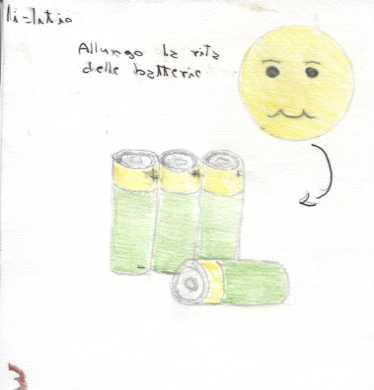 Allungo la vita
delle batterie
3